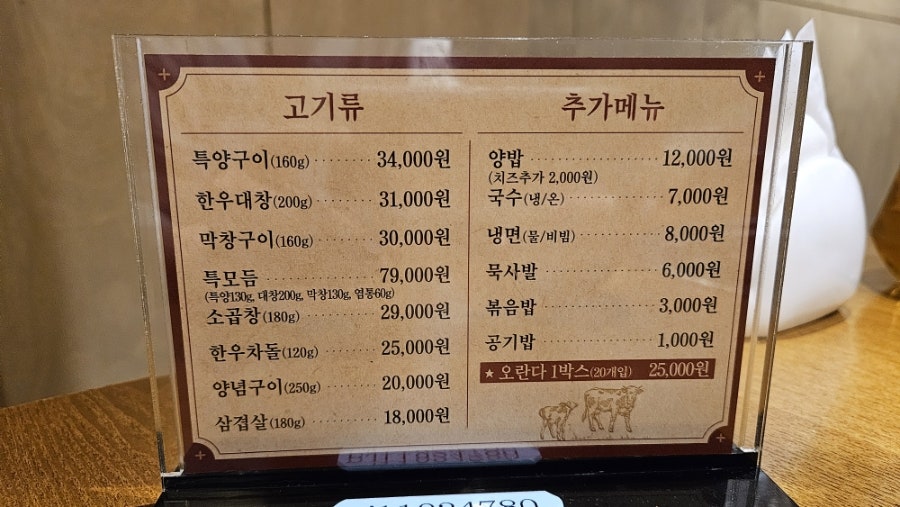 고기류
특양구이(160g) 34,000원
한우대창(200g) 31,000원
막창구이(160g) 30,000원
특모듬 79,000원
(특양130g, 대창200g, 막창130g, 염통60g)
소곱창(180g) 29,000원
한우차돌(120g) 25,000원
양념구이(250g) 20,000원
삼겹살(180g) 18,000원
추가메뉴
양밥 12,000원
(치즈추가 2,000원)
국수(냉/온) 7,000원
냉면(물/비빔) 8,000원
묵사발 6,000원
볶음밥 3,000원
공기밥 1,000원
★ 오란다 1박스(20개입) 25,000원